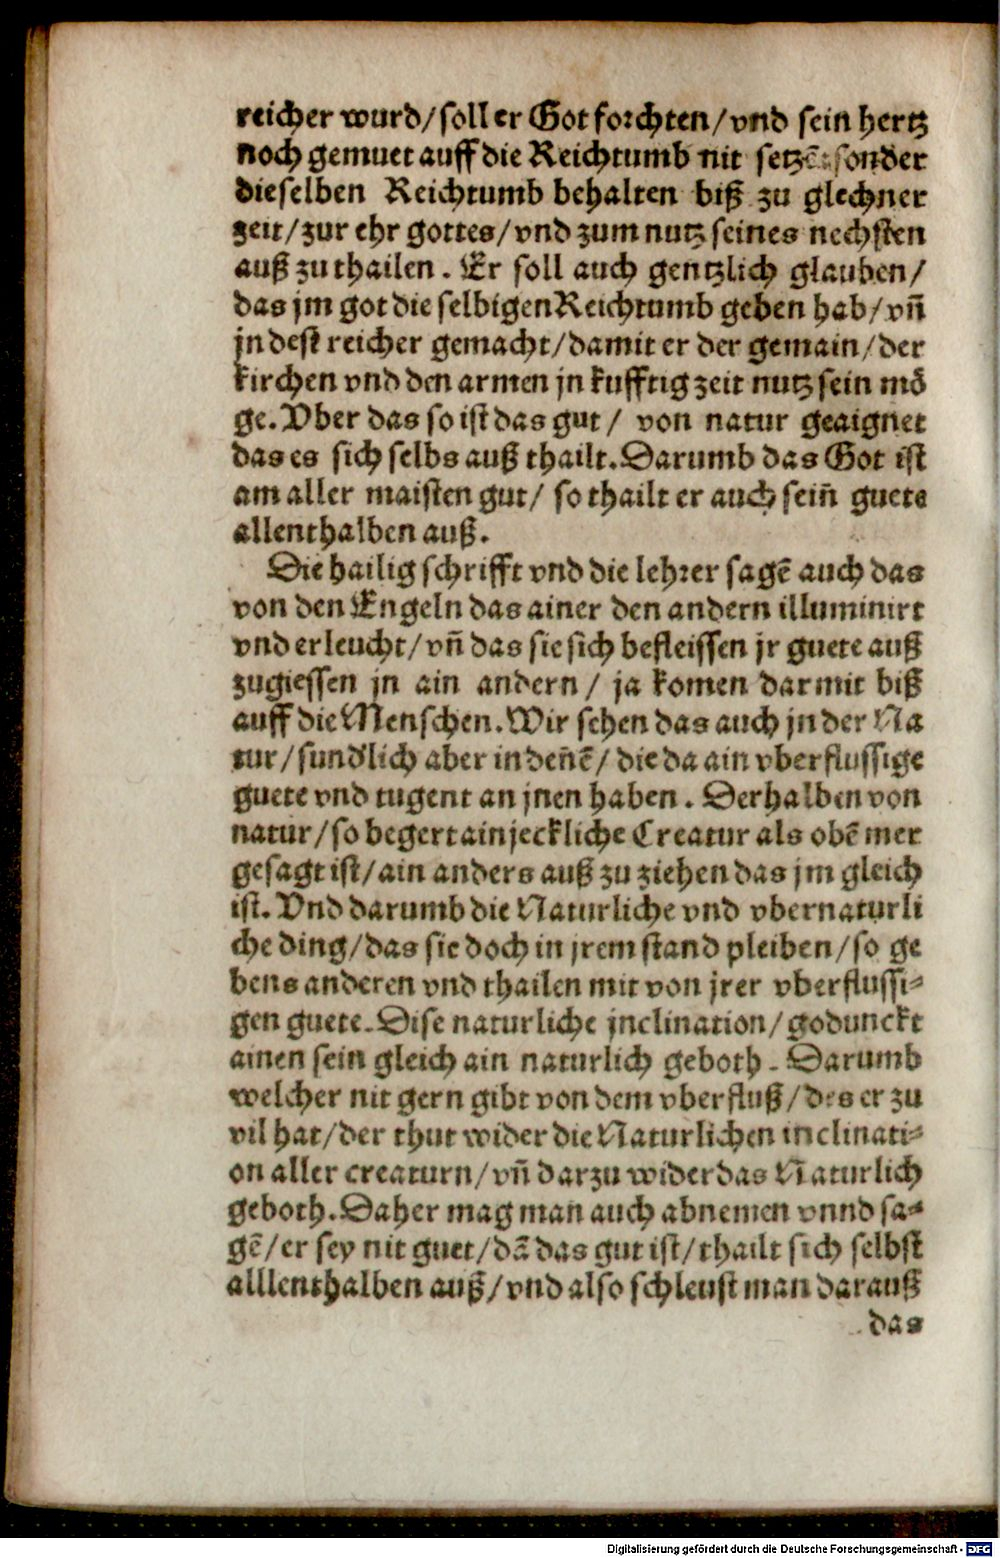 reicher wurd/soll er Got forchten/vnd sein hertz
noch gemuet auff die Reichtumb nit setzē: sonder
dieselben Reichtumb behalten biß zu glechner
zeit/zur ehr gottes/vnd zum nutz seines nechsten
auß zu thailen. Er soll auch gentzlich glauben/
das jm got die selbigen Reichtumb geben hab/vñ
jn dest reicher gemacht/damit er der gemain/der
kirchen vnd den armen jn kufftig zeit nutz sein mö
ge. Vber das so ist das gut/ von natur geaignet
das es sich selbs auß thailt. Darumb das Got ist
am aller maisten gut/ so thailt er auch sein̄ guete
allenthalben auß.
Die hailig schrifft vnd die lehrer sagē auch das
von den Engeln das ainer den andern illuminirt
vnd erleucht/vñ das sie sich befleissen jr guete auß
zugiessen jn ain andern/ ja komen darmit biß
auff die Menschen. Wir sehen das auch jn der Na
tur/sund'lich aber in den̄ē/ die da ain vberflussige
guete vnd tugent an jnen haben. Derhalben von
natur/so begert ain jeckliche Creatur als obē mer
gesagt ist/ain anders auß zu ziehen das jm gleich
ist. Vnd darumb die Naturliche vnd vbernaturli
che ding/das sie doch in jrem stand pleiben/so ge
bens anderen vnd thailen mit von jrer vberflussi-
gen guete. Dise naturliche jnclination/godunckt
ainen sein gleich ain naturlich geboth. Darumb
welcher nit gern gibt von dem vberfluß/des er zu
vil hat/der thut wider die Naturlichen inclinati-
on aller creaturn/vñ darzu wider das Naturlich
geboth. Daher mag man auch abnemen vnnd sa-
gē/er sey nit guet/dā das gut ist/thailt sich selbst
alllenthalben auß/vnd also schleust man darauß
das
Digitalisierung gefördert durch die Deutsche Forschungsgemeinschaft - DFG